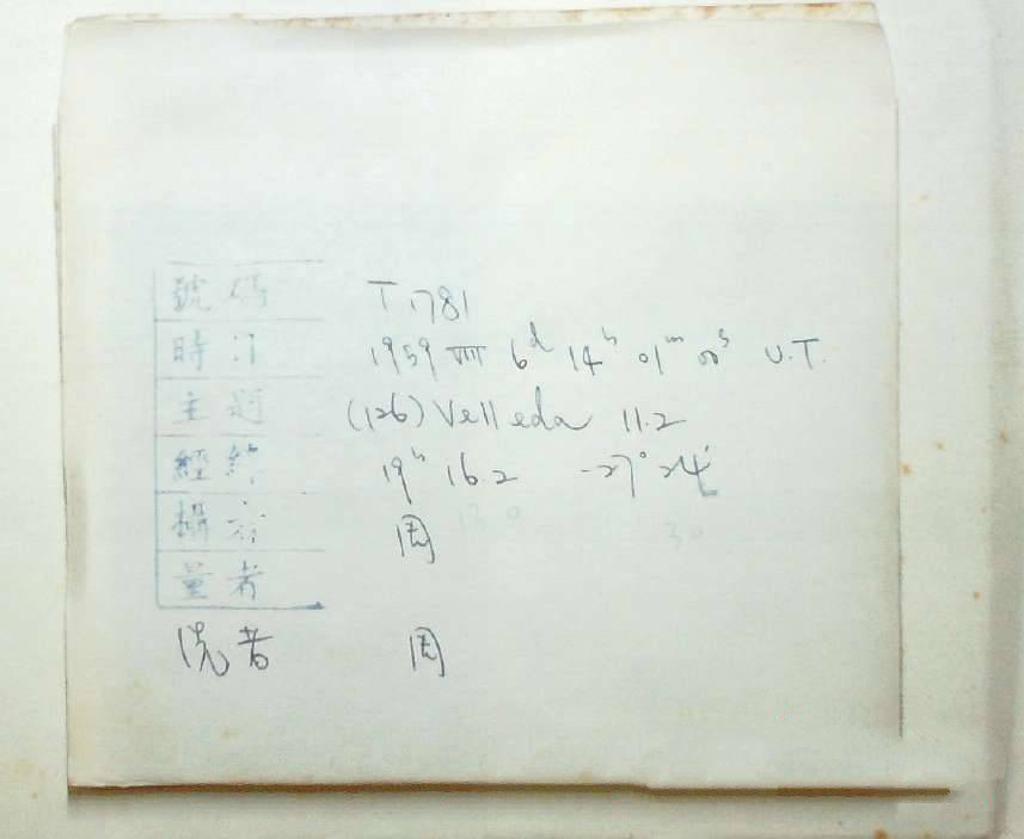 號碼 T 1781
時 1959 VIII 6d 14h 01m 00s U.T.
主題 (126) Velleda 11.2
經緯 19h 16.2 -27° 24'
攝 周
量者
洗者 周